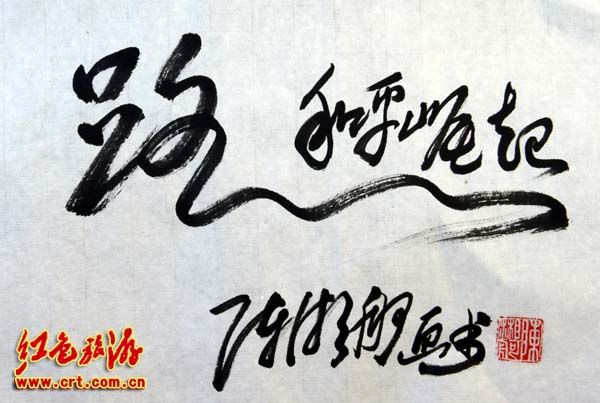 路 和平崛起
陈
红色旅游
www.crt.com.cn